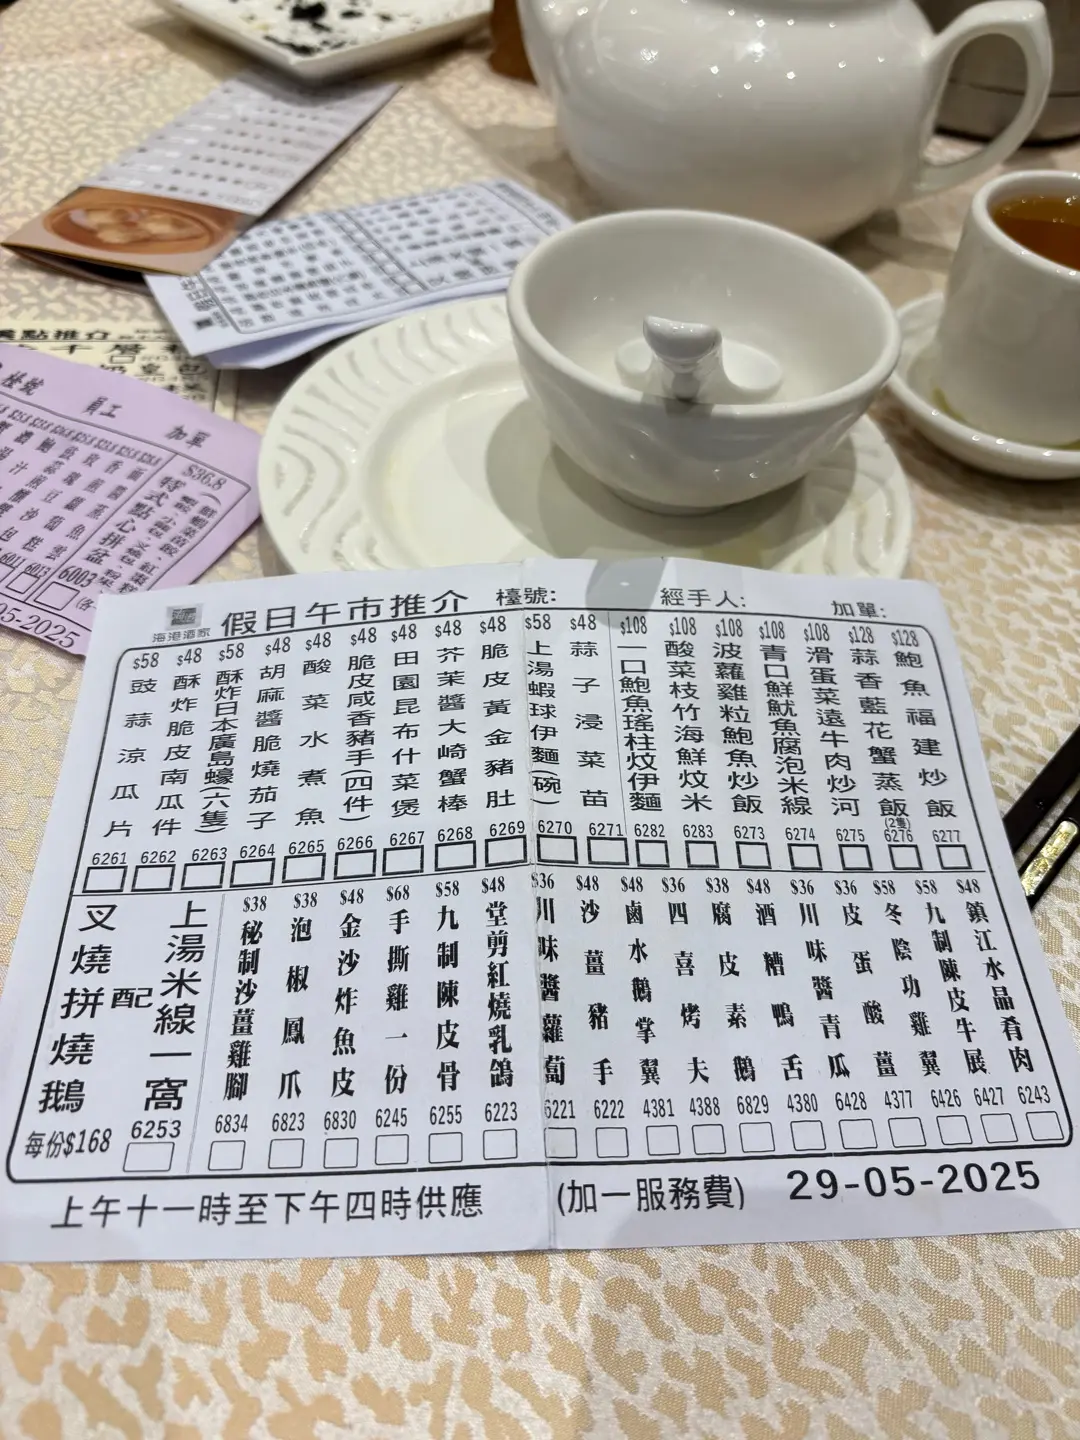 海港酒家
假日午市推介
檯號:
經手人:
加單:
$58 豉蒜涼瓜片 6261
$48 酥炸脆皮南瓜件 6262
$58 酥炸日本廣島蠔(六隻) 6263
$48 胡麻醬脆燒茄子 6264
$48 酸菜水煮魚 6265
$48 脆皮咸香豬手(四件) 6266
$48 田園昆布什菜煲 6267
$48 芥茉醬大崎蟹棒 6268
$48 脆皮黃金豬肚 6269
$58 上湯蝦球伊麵(碗) 6270
$48 蒜子浸菜苗 6271
$108 一口鮑魚瑤柱炆伊麵 6282
$108 酸菜枝竹海鮮炆米 6283
$108 菠蘿雞粒鮑魚炒飯 6273
$108 青口鮮魷魚腐泡米線 6274
$108 滑蛋菜遠牛肉炒河 6275
$128 蒜香藍花蟹蒸飯(2隻) 6276
$128 鮑魚福建炒飯 6277
叉燒拼燒鵝
配
上湯米線一窩
每份$168
6253
$38 秘制沙薑雞腳 6834
$38 泡椒鳳爪 6823
$48 金沙炸魚皮 6830
$68 手撕雞一份 6245
$58 九制陳皮骨 6255
$48 堂剪紅燒乳鴿 6223
$36 川味醬蘿蔔 6221
$48 沙薑豬手 6222
$48 鹵水鵝掌翼 4381
$36 四喜烤夫 4388
$38 腐皮素鵝 6829
$48 酒糟鴨舌 4380
$36 川味醬青瓜 6428
$36 皮蛋酸薑 4377
$58 冬陰功雞翼 6426
$58 九制陳皮牛展 6427
$48 鎮江水晶肴肉 6243
上午十一時至下午四時供應
(加一服務費)
29-05-2025
檯號
員工
加單
$36.8
特式點心拼盆
6003
6011
6013
05-2025
點推介